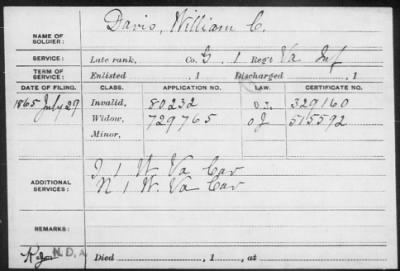 NAME OF SOLDIER: Davis, William C.
SERVICE: Late rank, Co. G. 1 Reg't Va Inf
TERM OF SERVICE: Enlisted , 1 Discharged , 1
DATE OF FILING. CLASS. APPLICATION NO. LAW. CERTIFICATE NO.
1865 July 29 Invalid, 80232 329160
Widow, 729765 515592
Minor,
ADDITIONAL SERVICES: I 1 W Va Cav
N 1 W. Va Cav
REMARKS:
N.D.A. Died , 1 , at